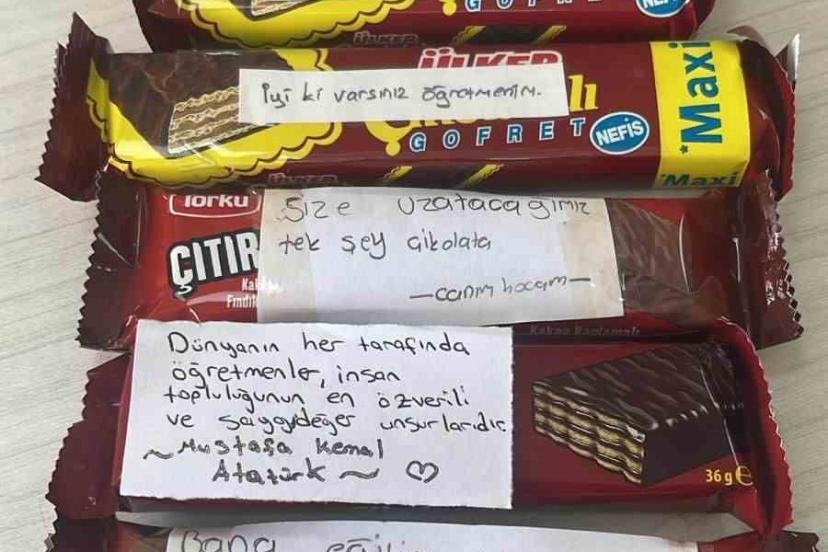 GOFRET
ÜLKER
ÜLKER
İyi ki varsınız öğretmenim.
GOFRET
NEFİS
*Maxi
ÜLKER
*Maxi
Torku
ÇITIR
Size uzatacağımız
tek şey çikolata
—canım hocam—
Kakao Kaplamalı
Dünyanın her tarafında
öğretmenler, insan
topluluğunun en özverili
ve saygıdeğer unsurlarıdır.
~Mustafa Kemal
Atatürk~ ♡
36 g e
Bana